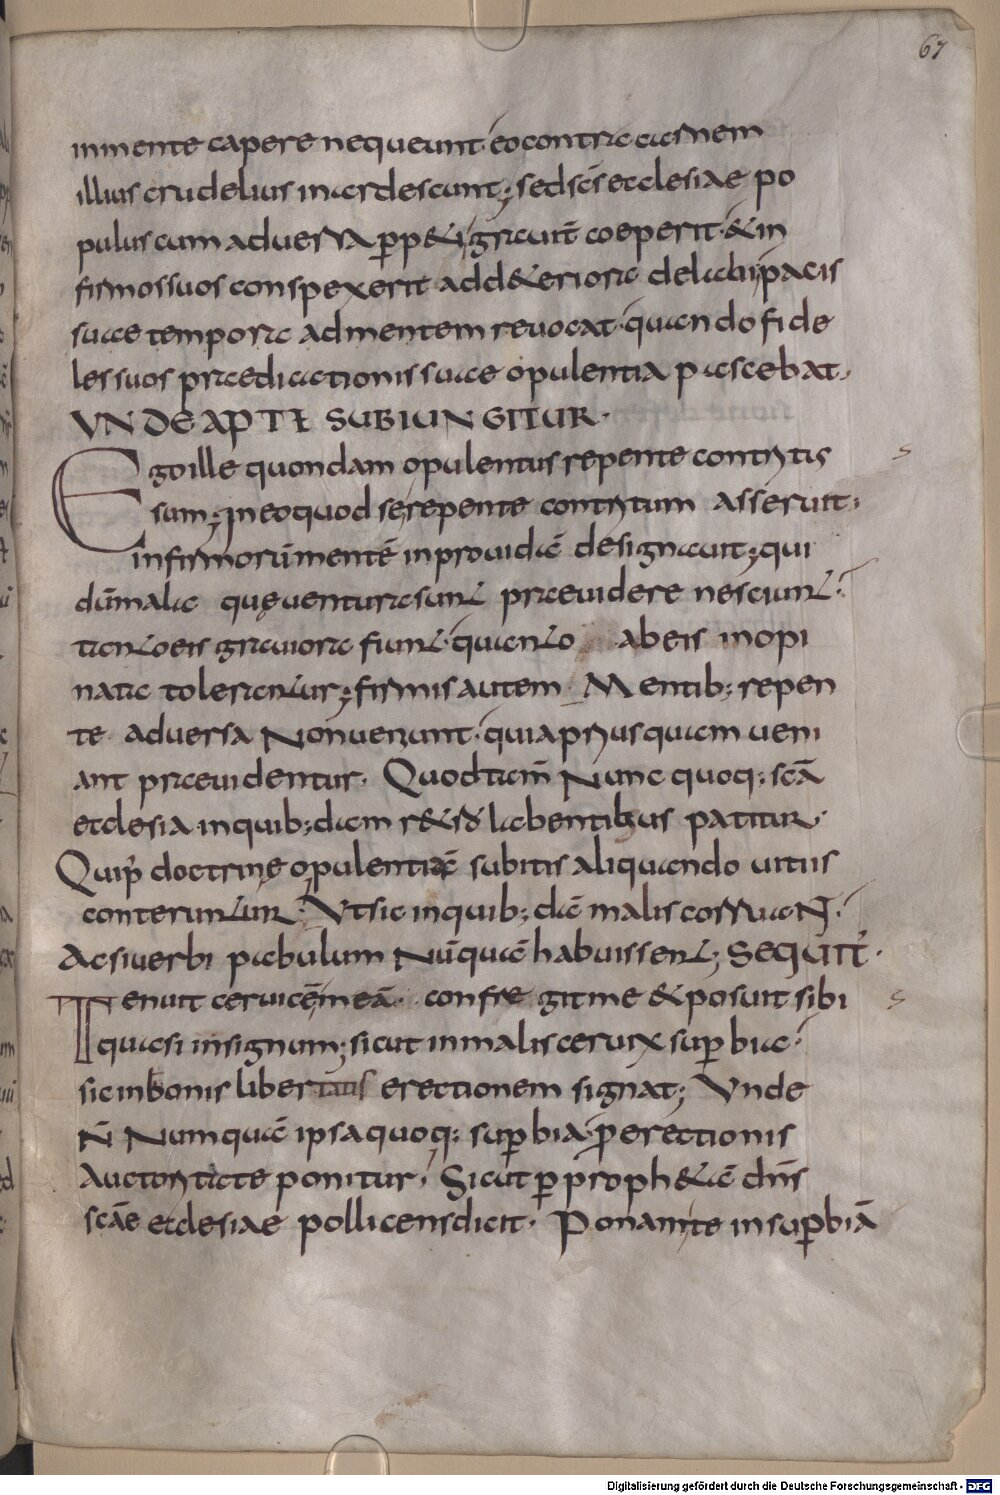 67
inmente capere nequeunt· eo contra carnem
illius crudelius inardescunt; sed scs ecclesiae po
pulus cum adversa ꝑpeti gravit̄ coeperit· & in
firmos suos conspexerit ad d&eriora delabi· pacis
suae tempora ad mentem revocat· quando fide
les suos praedicationis suae opulentia pascebat·
UNDE APTE SUBIUNGITUR·
Ego ille quondam opulentus repente contritus
sum; In eo quod se repente contritum asseruit;
infirmorū mentē inprovidā designavit; qui
dū mala quę ventura sunt praevidere nesciunt·
tanto eis graviora fiunt· quanto ab eis inopi
nate tolerantur; firmis autem Mentib; repen
te adversa Non veniunt· quia priusquam veni
ant praevidentur· Quod tam̄ Nunc quoq; scā
ecclesia in quib;dam r&ro labentibus patitur·
Quip̄ doctrine opulentiā subitis aliquando vitiis
conteruntur· Ut sic in quib;dā malis corruaN̄·
Ac si verbi pabulum Nūquā habuissent; SEQUIT̄·
Tenuit cervicē meā· confregit me & posuit sibi
quasi in signum; sicut in malis cervix suꝑbiae·
sic in bonis libertatis erectionem signat; Unde
N̄ Numquā ipsa quoq; suꝑbia· ꝓ erectionis
Auctoritate ponitur· Sicut ꝑ proph&ā dn̄s
scāe ecclesiae pollicens dicit· Ponam te in suꝑbiā
s
s
Digitalisierung gefördert durch die Deutsche Forschungsgemeinschaft - DFG